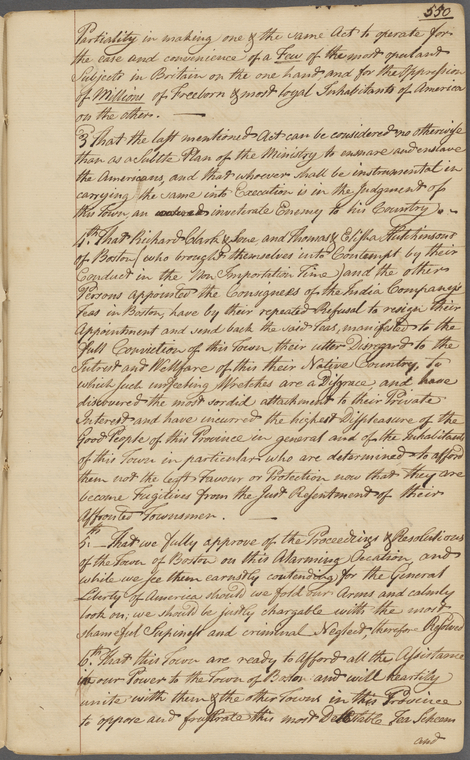 550
Partiality in making one & the same Act to operate for
the ease and convenience of a Few of the most opulant
Subjects in Britain on the one hand and for the Oppression
of Millions of Freeborn & most loyal Inhabitants of America
on the other.
3 That the last mentioned Act can be considered no otherwise
than as a Subtle Plan of the Ministry to ensnare and enslave
the Americans, and that whoever shall be instrumental in
carrying the same into Execution is in the Judgement of
this Town an inveterate Enemy to his Country.
4th That Richard Clark & Sone and Thomas & Elisha Hutchinsons
of Boston (who brought themselves into Contempt by their
Conduct in the Non Importation Time) and the other
Persons appointed the Consignees of the India Company's
Teas in Boston, have by their repeated Refusal to resign their
Appointment and send back the said Teas, manifested to the
full Conviction of this Town their utter Disregard to the
Intrest and Wellfare of this their Native Country, to
which such unfeeling Wretches are a Disgrace, and have
discovered the most sordid attachment to their Private
Interest and have incurred the highest Displeasure of the
Good People of this Province in general and of the Inhabitants
of this Town in particular who are determined to afford
them not the least Favour or Protection now that they are
become Fugitives from the Just Resentment of their
Affronted Townsmen.
5th That we fully approve of the Proceedings & Resolutions
of the Town of Boston on this Alarming Occation, and
while we see them earnestly contending for the General
Liberty of America should we fold our Arms and calmly
look on; we should be justly chargable with the most
shameful Supiness and criminal Neglect therefore Resolved
6th That this Town are ready to Afford all the Assistance
in our Power to the Town of Boston and will heartily
unite with them & the other Towns in this Province
to oppose and frustrate this most Detestable Tea Scheem
and